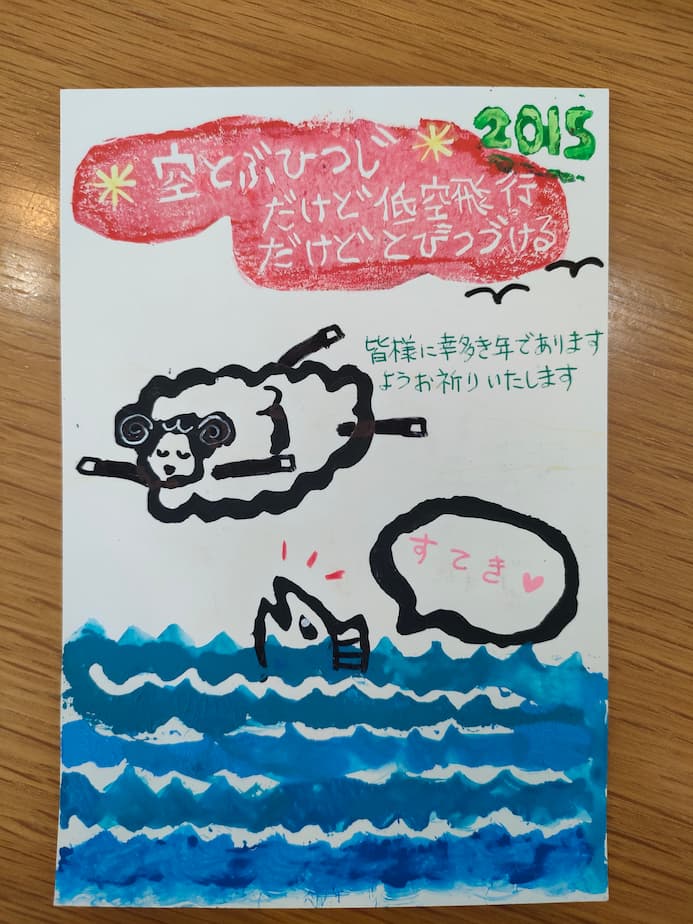 2015
空とぶひつじ
だけど低空飛行
だけどとびつづける
皆様に幸多き年であります
ようお祈りいたします
すてき♥